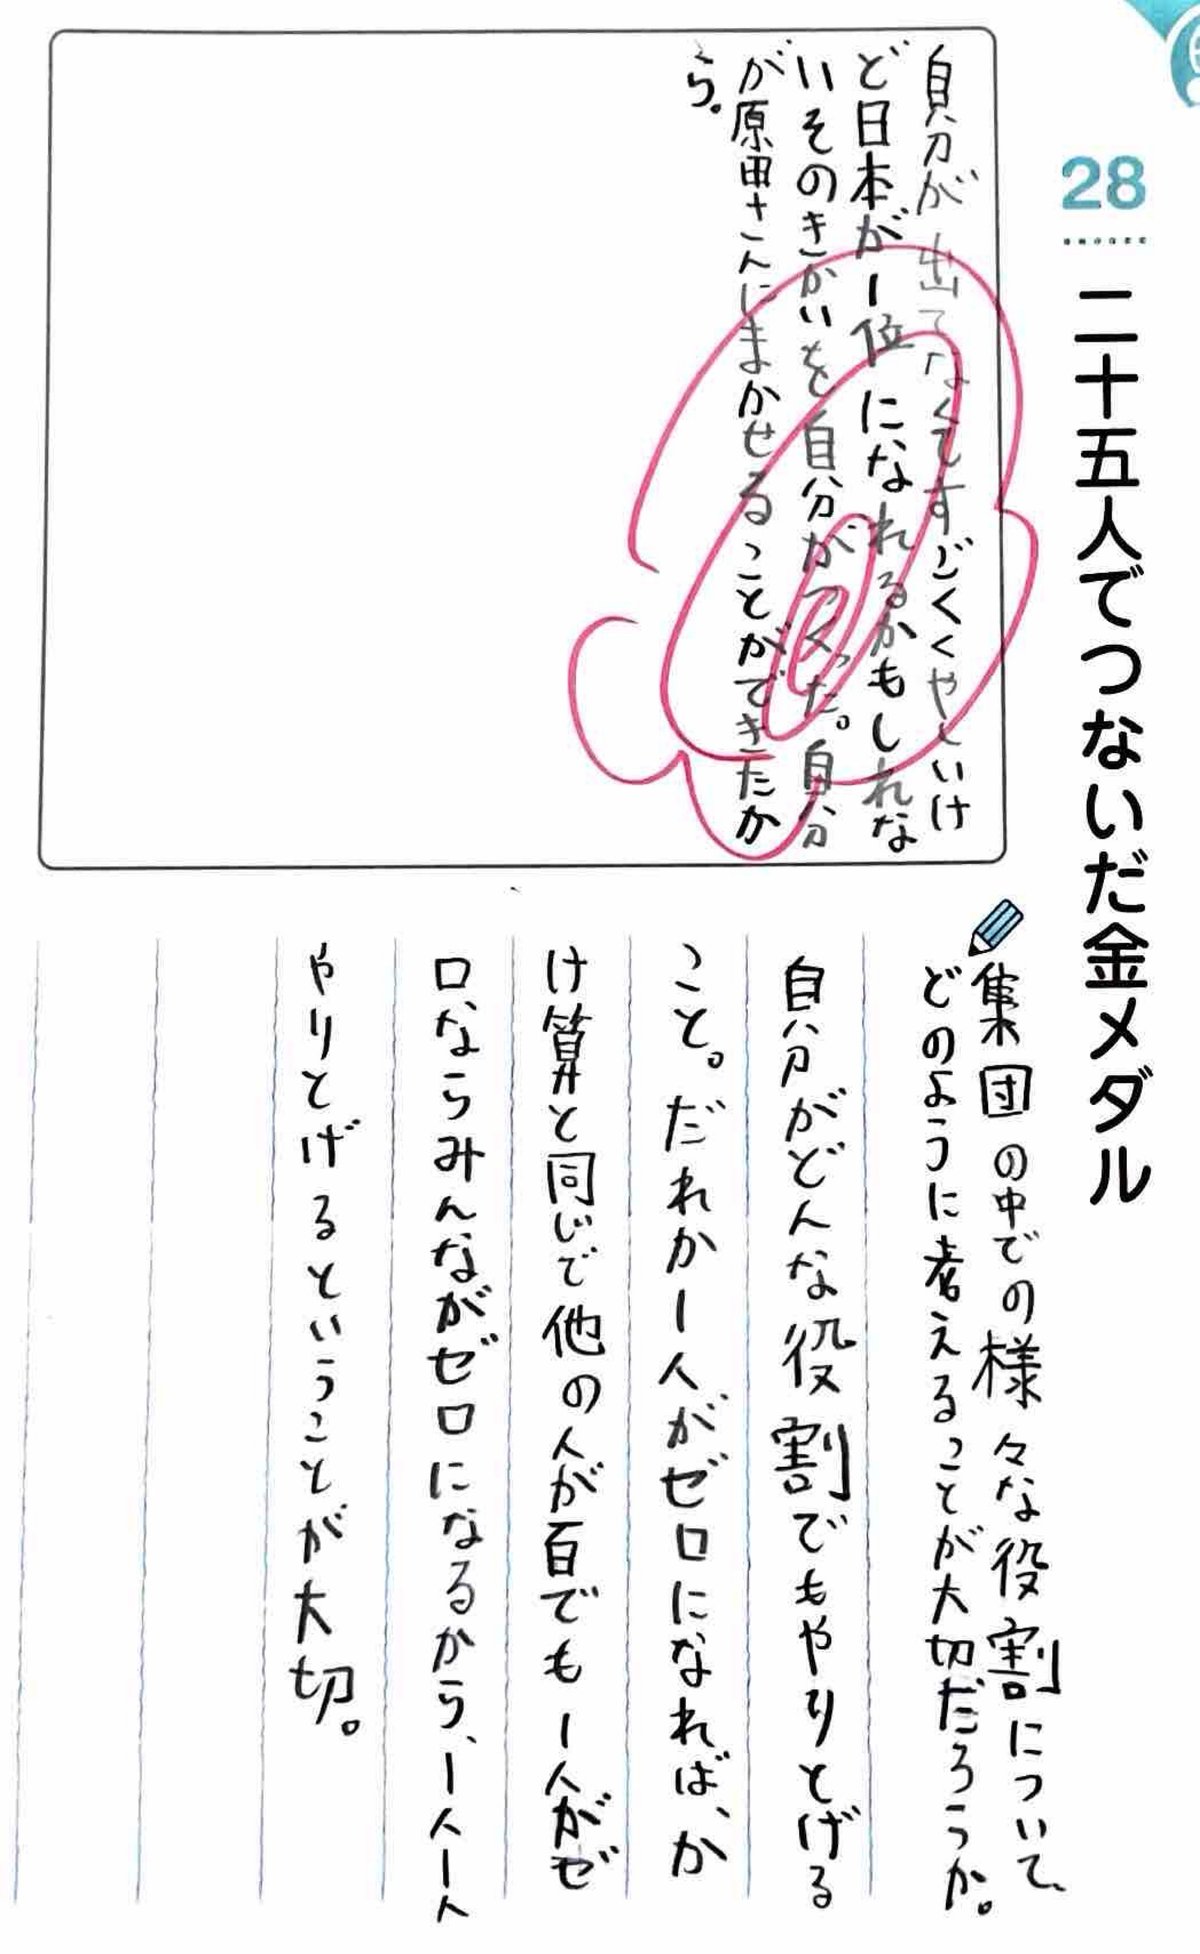 28
二十五人でつないだ金メダル
自分が出てなくてすごくくやしいけ
ど日本が1位になれるかもしれな
いそのきかいを自分がつくった。自分
が原田さんにまかせることができたか
ら。
集団の中での様々な役割について、
どのように考えることが大切だろうか。
自分がどんな役割でもやりとげる
こと。だれか一人がゼロになれば、か
け算と同じで他の人が百でも一人がゼ
ロならみんながゼロになるから、一人一人
やりとげるということが大切。